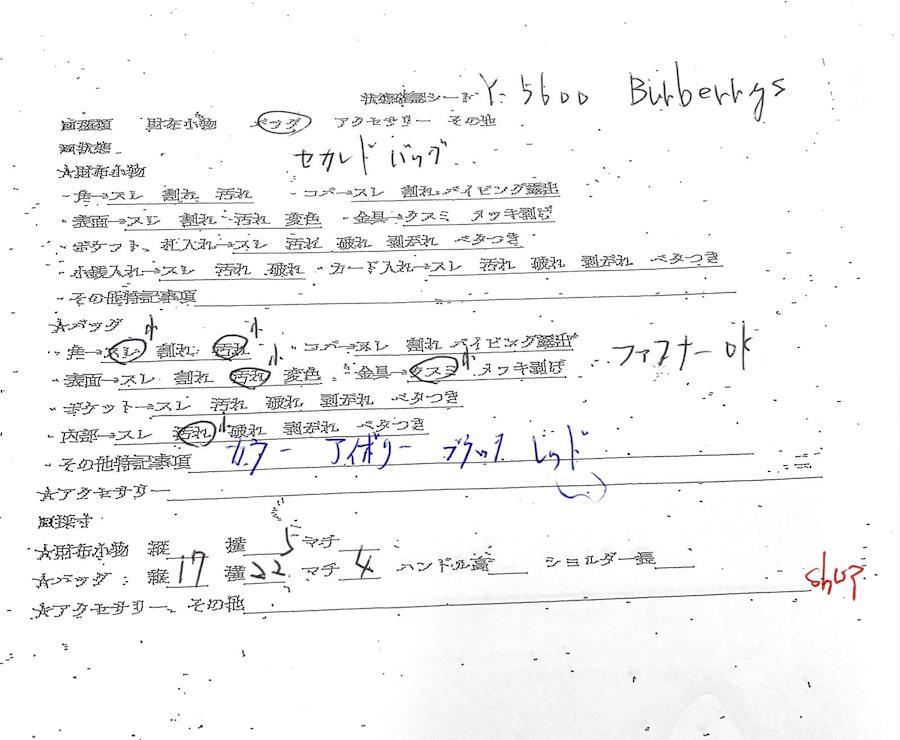 状態確認シート Y-5600 Burberrys
財布小物 バッグ アクセサリー その他
□状態 セカンドバッグ
☆財布小物
・角→スレ 割れ 汚れ ・コバ→スレ 割れ パイピング露出
・表面→スレ 割れ 汚れ 変色 ・金具→クスミ メッキ剥げ
・ポケット、札入れ→スレ 汚れ 破れ 剥がれ ベタつき
・小銭入れ→スレ 汚れ 破れ ・カード入れ→スレ 汚れ 破れ 剥がれ ベタつき
・その他特記事項
☆バッグ
・角→スレ 小 割れ 汚れ 小 ・コバ→スレ 割れ パイピング露出
・表面→スレ 割れ 汚れ 小 変色 ・金具→クスミ 小 メッキ剥げ ファスナーOK
・ポケット→スレ 汚れ 破れ 剥がれ ベタつき
・内部→スレ 汚れ 小 破れ 剥がれ ベタつき
・その他特記事項 カラー アイボリー ブラック レッド
☆アクセサリー
□採寸
☆財布小物 縦 横 5 マチ
☆バッグ: 縦 17 横 22 マチ 4 ハンドル高 ショルダー長
☆アクセサリー、その他